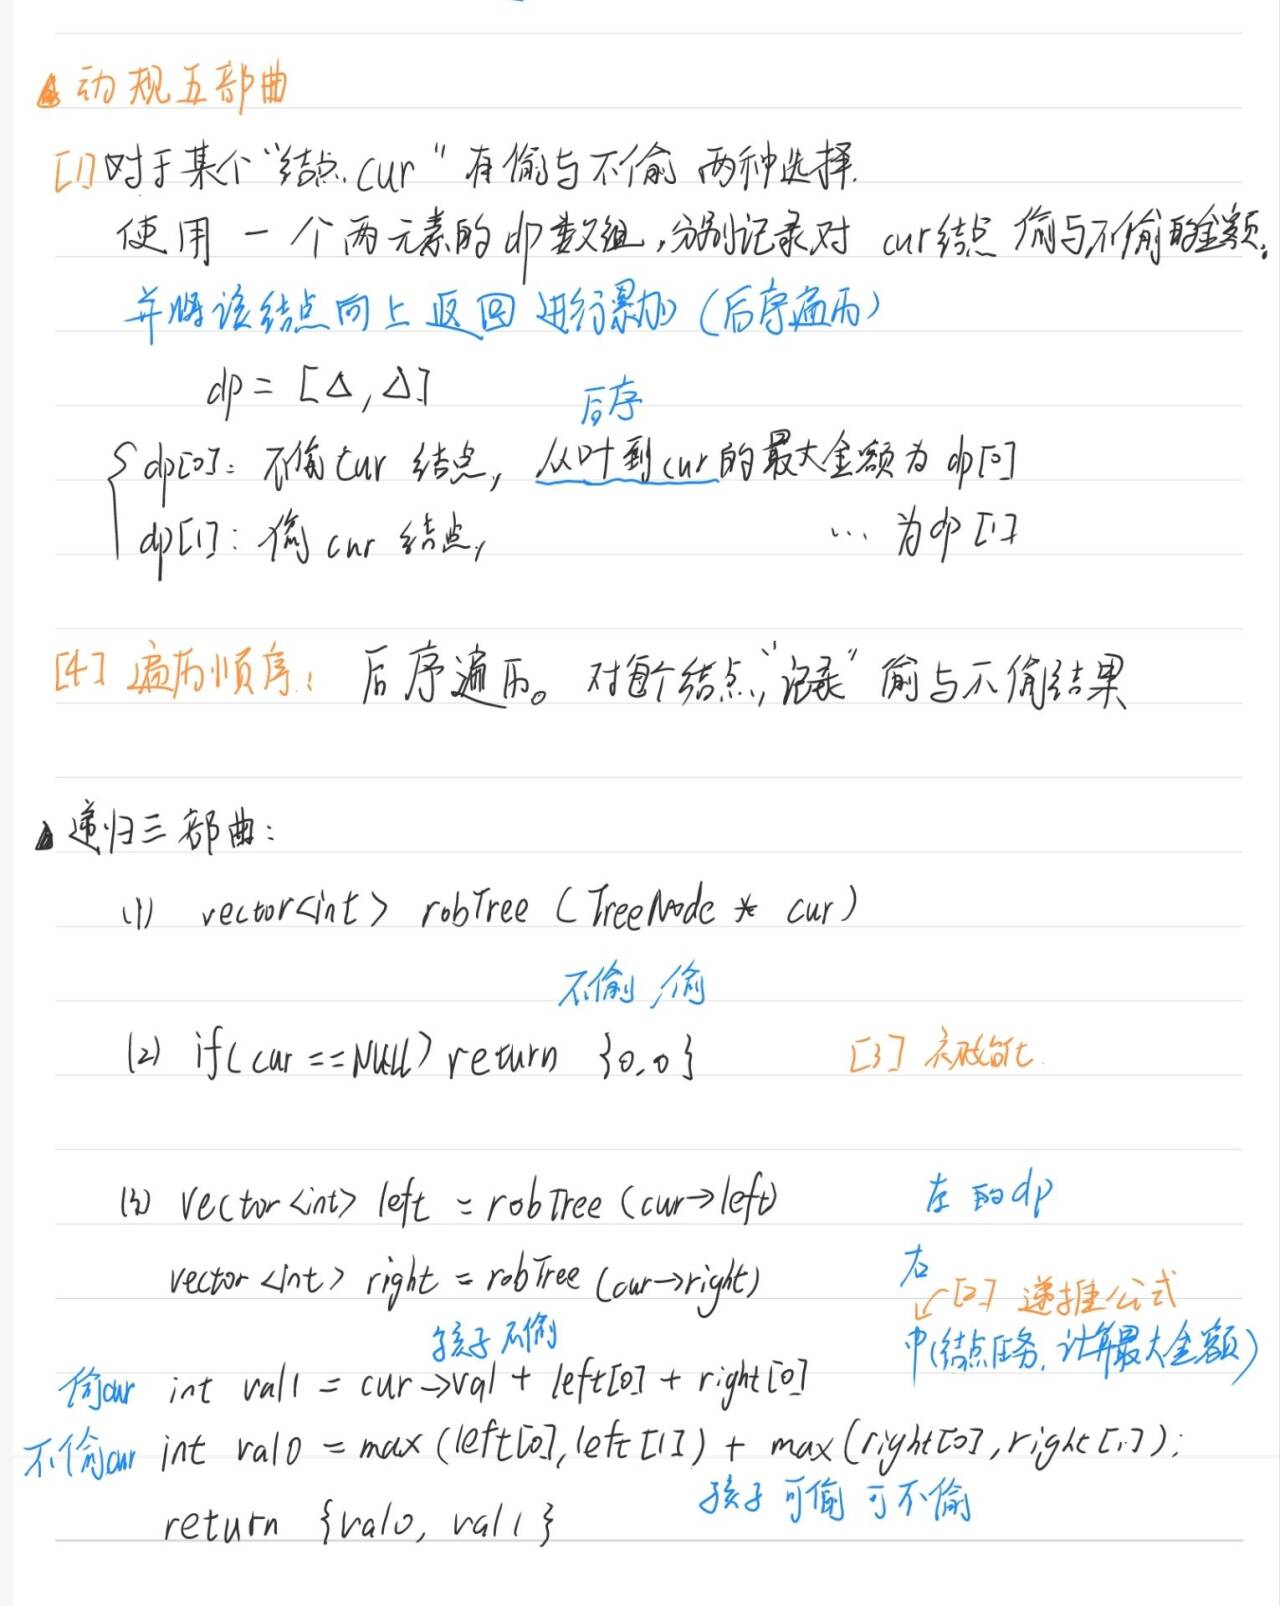 动规五部曲
[1] 对于某个“结点cur”有偷与不偷 两种选择.
使用一个两元素的dp数组,分别记录对 cur结点 偷与不偷的金额。
并将该结点向上返回 进行累加 (后序遍历)
dp = [Δ, Δ]
后序
dp[0]: 不偷cur 结点, 从叶到cur的最大金额为 dp[0]
dp[1]: 偷 cur 结点, ... 为dp[1]
[4] 遍历顺序: 后序遍历。对每个结点,“记录”偷与不偷结果
递归三部曲:
(1) vector<int> robTree (TreeNode * cur)
不偷,偷
(2) if(cur ==NULL) return {0,0} [3]
(3) vector<int> left = robTree (cur->left) 左的dp
vector <int> right = robTree (cur->right) 右
[2] 递推公式
孩子不偷 中(结点任务, 计算最大金额)
偷cur int val1 = cur->val + left[0] + right[0]
不偷cur int val0 = max (left[0], left[1]) + max (right[0], right[1]);
孩子可偷可不偷
return {val0, val1}